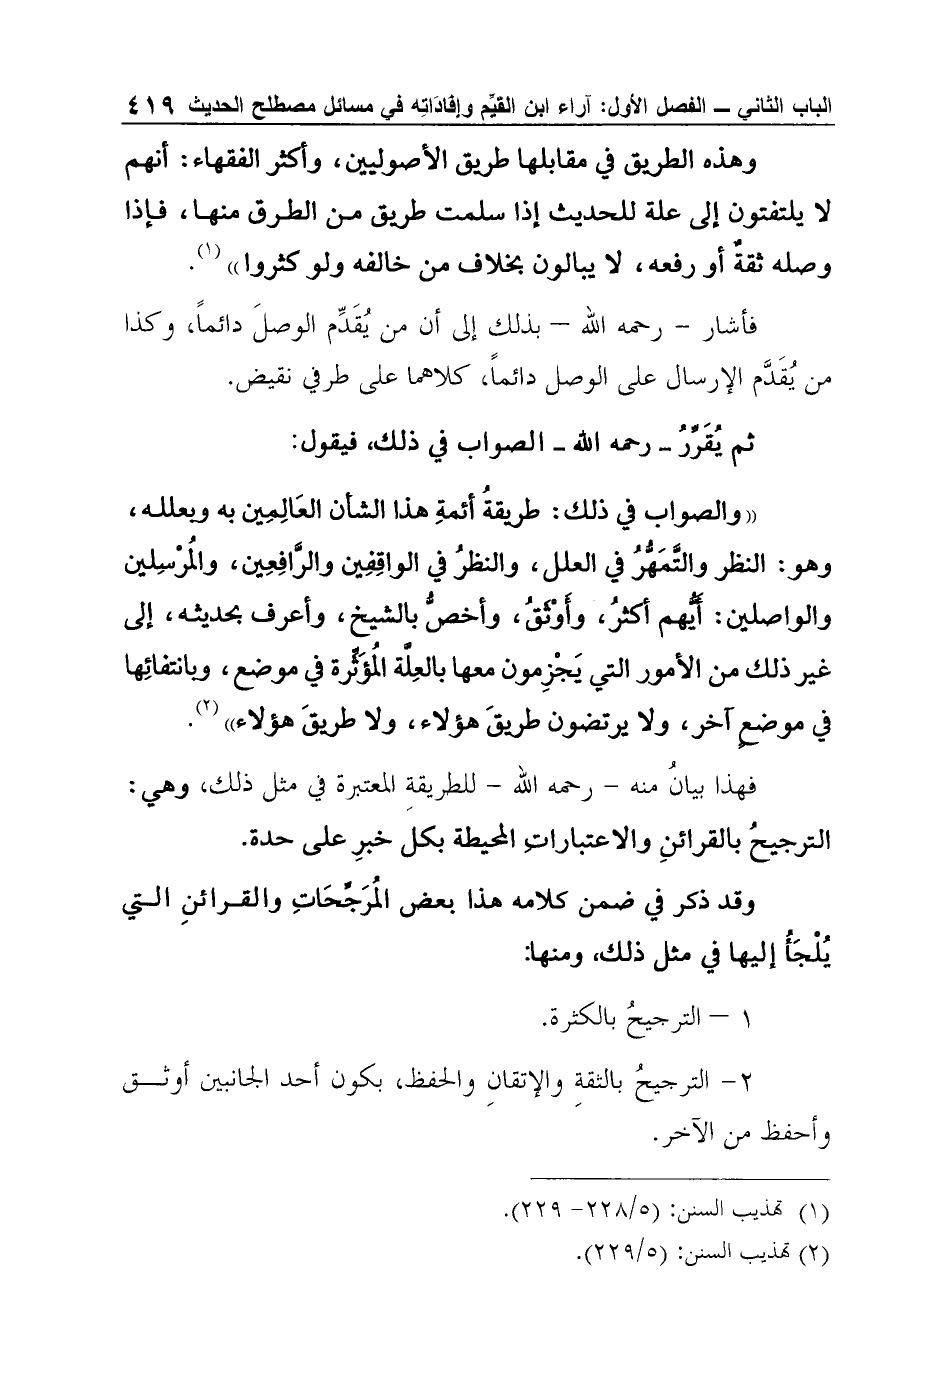 الباب الثاني ــ الفصل الأول: آراء ابن القيِّم وإفادَاتِه في مسائل مصطلح الحديث ٤١٩
وهذه الطريق في مقابلها طريق الأصوليين، وأكثر الفقهاء: أنهم
لا يلتفتون إلى علة للحديث إذا سلمت طريق من الطرق منها، فإذا
وصله ثقةٌ أو رفعه، لا يبالون بخلاف من خالفه ولو كثروا»(١).
فأشار - رحمه الله - بذلك إلى أن من يُقَدِّم الوصلَ دائماً، وكذا
من يُقَدَّم الإرسال على الوصل دائماً، كلاهما على طرفي نقيض.
ثم يُقَرِّرُ ـ رحمه الله ـ الصواب في ذلك، فيقول:
«والصواب في ذلك: طريقةُ أئمةِ هذا الشأن العَالِمِين به وبعلله،
وهو: النظر والتَّمَهُّرُ في العلل، والنظرُ في الواقِفِين والرَّافِعِين، والمُرْسِلين
والواصلين: أَيُّهم أكثرُ، وأَوْثَقُ، وأخصُّ بالشيخ، وأعرف بحديثه، إلى
غير ذلك من الأمور التي يَجْزِمون معها بالعِلَّة المُؤَثِّرة في موضع، وبانتفائِها
في موضعٍ آخر، ولا يرتضون طريقَ هؤلاء، ولا طريقَ هؤلاء»(٢).
فهذا بيانُ منه - رحمه الله - للطريقةِ المعتبرة في مثل ذلك، وهي:
الترجيحُ بالقرائنِ والاعتباراتِ المحيطة بكل خبرِ على حدة.
وقد ذكر في ضمن كلامه هذا بعض المُرَجِّحَاتِ والقـرائنِ التـي
يُلْجَأُ إليها في مثل ذلك، ومنها:
١ - الترجيحُ بالكثرة.
٢- الترجيحُ بالثقةِ والإتقانِ والحفظ، بكون أحد الجانبين أوثـق
وأحفظ من الآخر.
(١) تهذيب السنن: (٢٢٨/٥- ٢٢٩).
(٢) تهذيب السنن: (٢٢٩/٥).